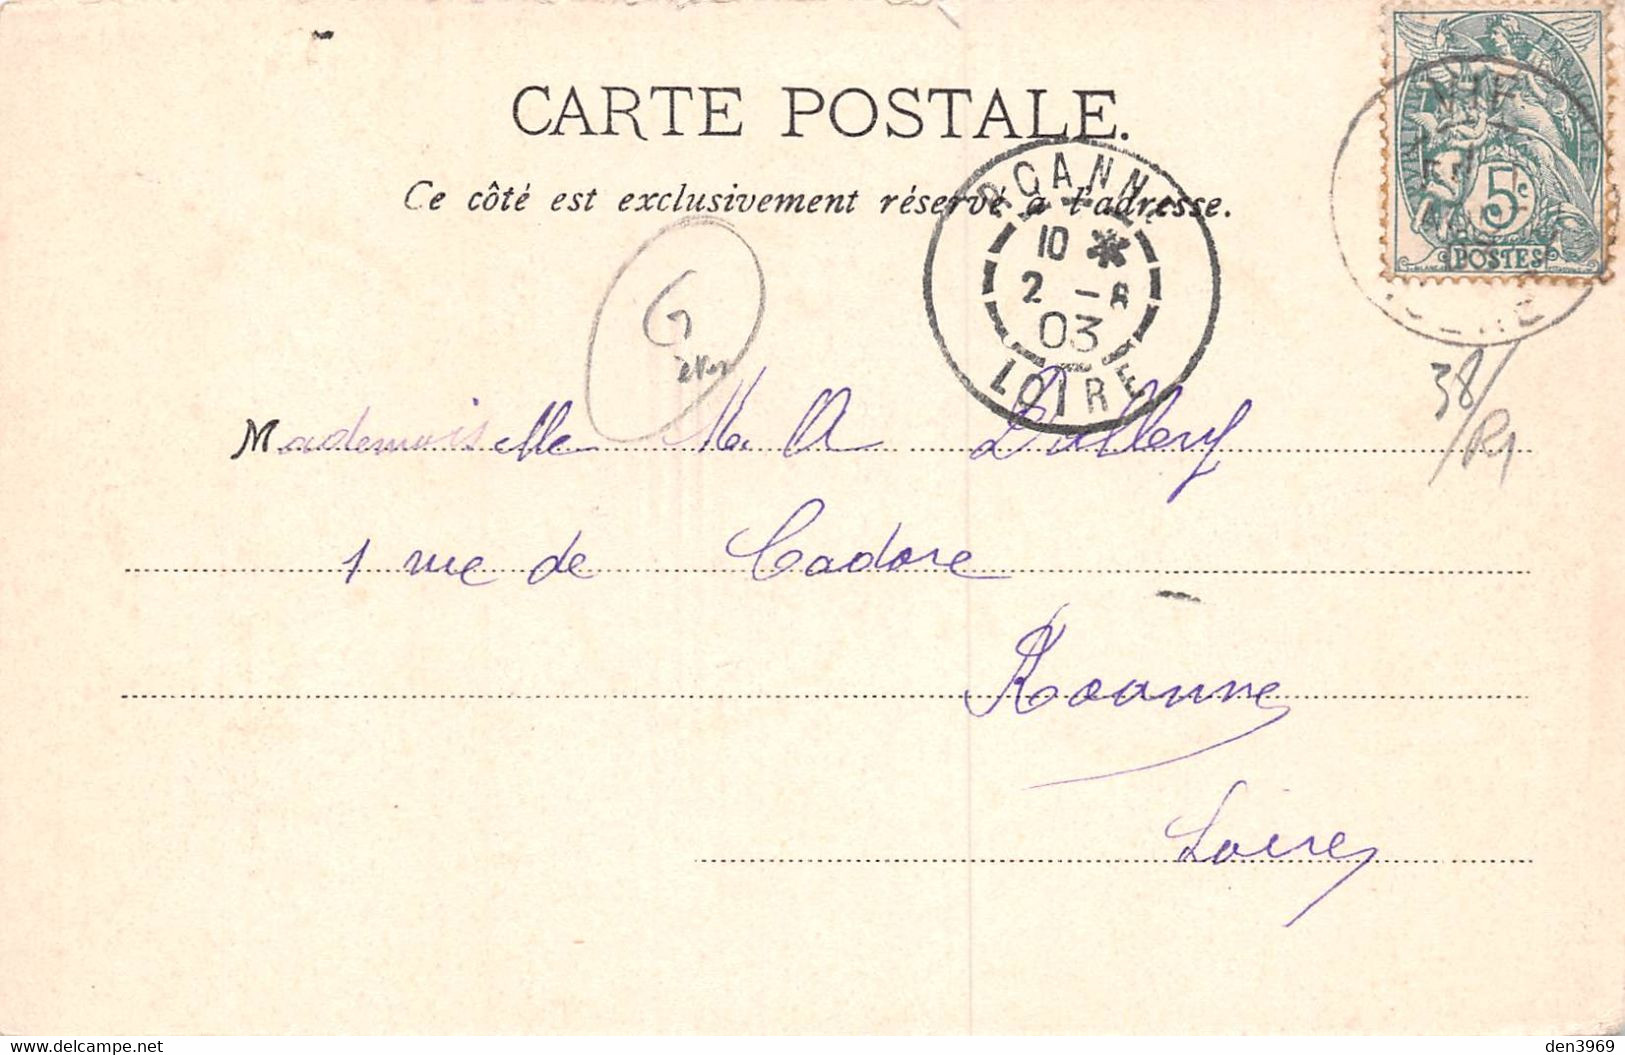 CARTE POSTALE.
Ce côté est exclusivement réservé à l'adresse.
ROANNE
10 *
2 -8
03
LOIRE
5c
POSTES
38/R1
G
Mademoiselle M. A Dallery
1 rue de Cadore
Roanne
Loire
den3969